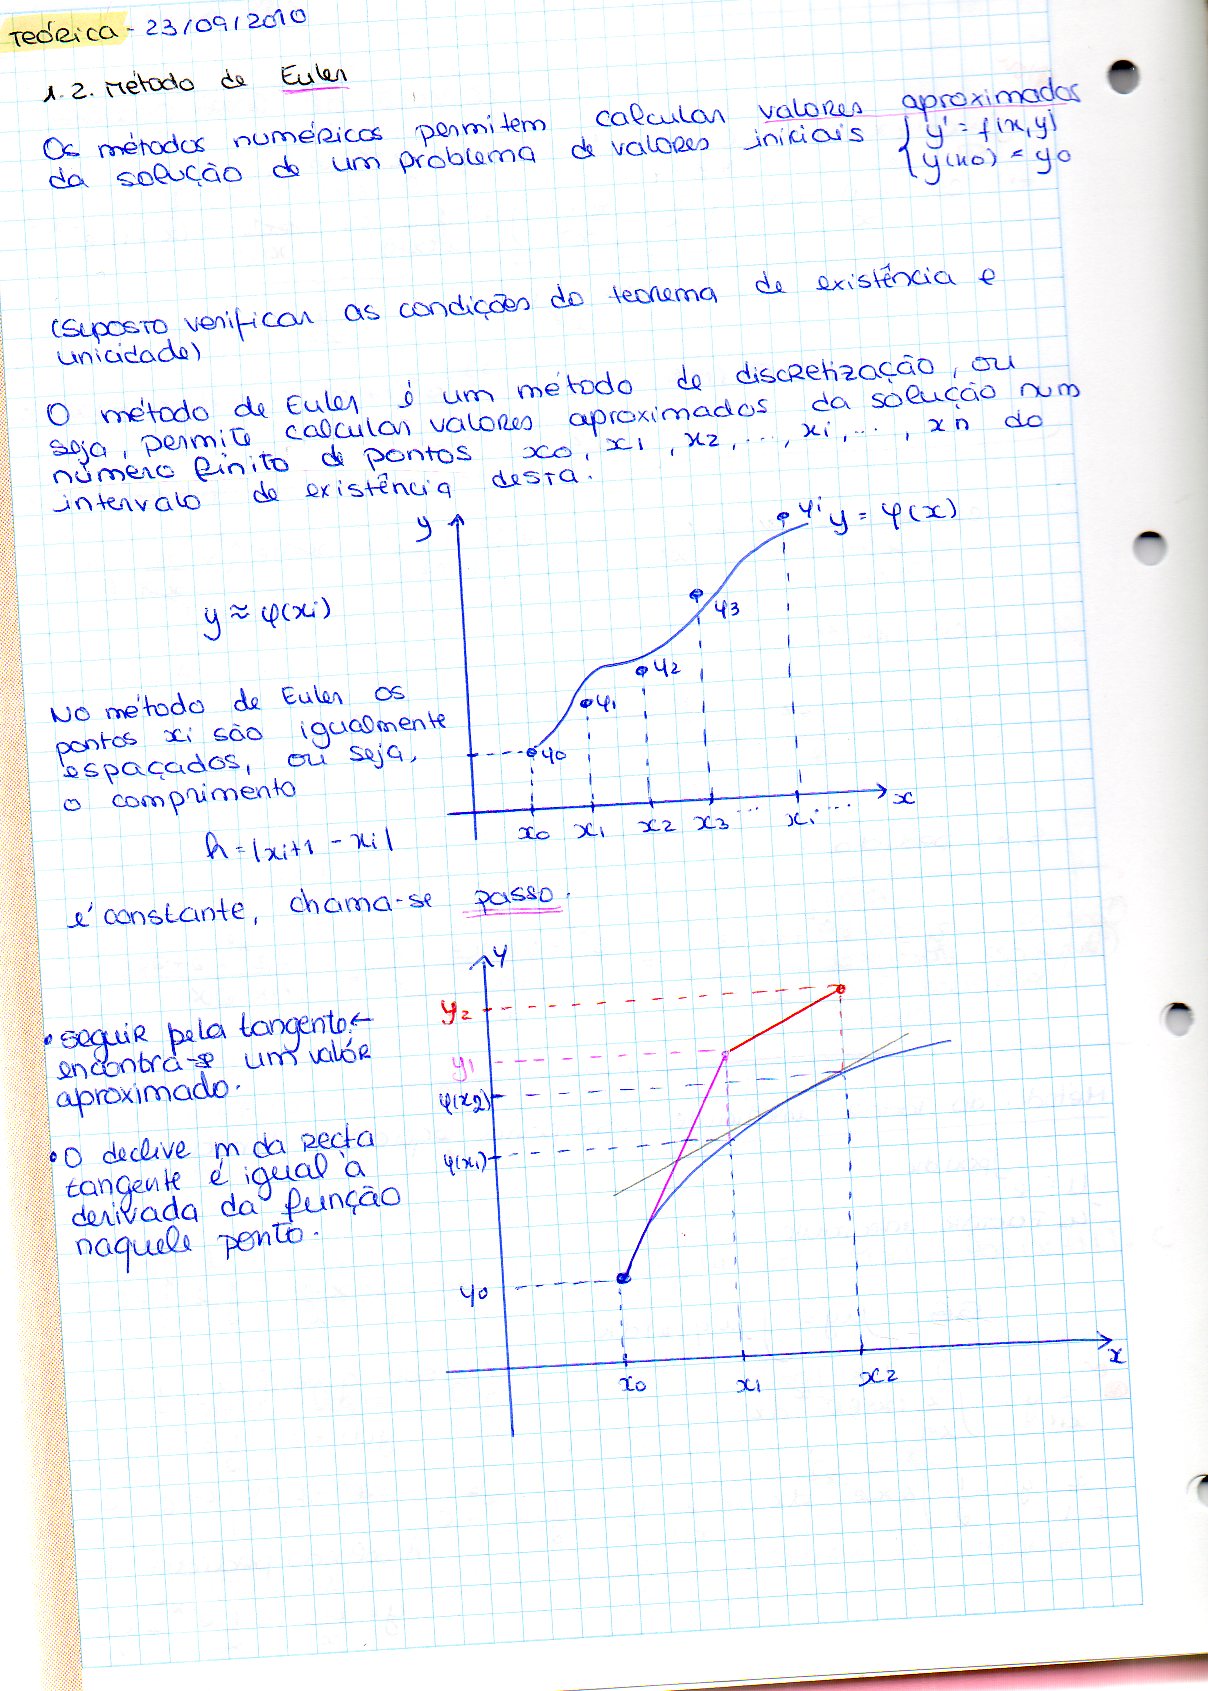 Teórica - 23/09/2010
1.2. Método de Euler
Os métodos numéricos permitem calcular valores aproximados
da solução de um problema de valores iniciais { y' = f(x,y)
y(x0) = y0
(Suposto verificar as condições do teorema de existência e
unicidade)
O método de Euler é um método de discretização, ou
seja, permite calcular valores aproximados da solução num
número finito de pontos x0, x1, x2, ..., xi, ..., xn do
intervalo de existência desta.
y
yi y = φ(x)
y ≈ φ(xi)
y3
y2
y1
y0
No método de Euler os
pontos xi são igualmente
espaçados, ou seja,
o comprimento
x0 x1 x2 x3 ... xi .... x
h = |xi+1 - xi|
é constante, chama-se passo.
y
• seguir pela tangente ←
encontra-se um valor
aproximado.
• O declive m da recta
tangente é igual à
derivada da função
naquele ponto.
y2
y1
φ(x2)
φ(x1)
y0
x0 x1 x2 x